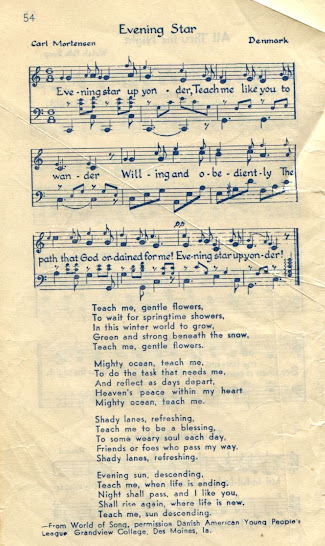 54
Evening Star
Carl Mortensen Denmark
Eve-ning star up yon - der, Teach me like you to
wan - der Will - ing and o - be - dient - ly The
pp
path that God or-dained for me! Eve-ning star up yon-der!
Teach me, gentle flowers,
To wait for springtime showers,
In this winter world to grow,
Green and strong beneath the snow,
Teach me, gentle flowers.
Mighty ocean, teach me,
To do the task that needs me,
And reflect as days depart,
Heaven's peace within my heart
Mighty ocean, teach me.
Shady lanes, refreshing,
Teach me to be a blessing,
To some weary soul each day,
Friends or foes who pass my way.
Shady lanes, refreshing.
Evening sun, descending,
Teach me, when life is ending.
Night shall pass, and I like you,
Shall rise again, where life is new.
Teach me, sun descending.
—From World of Song, permission Danish American Young People's
League Grandview College, Des Moines, Ia.